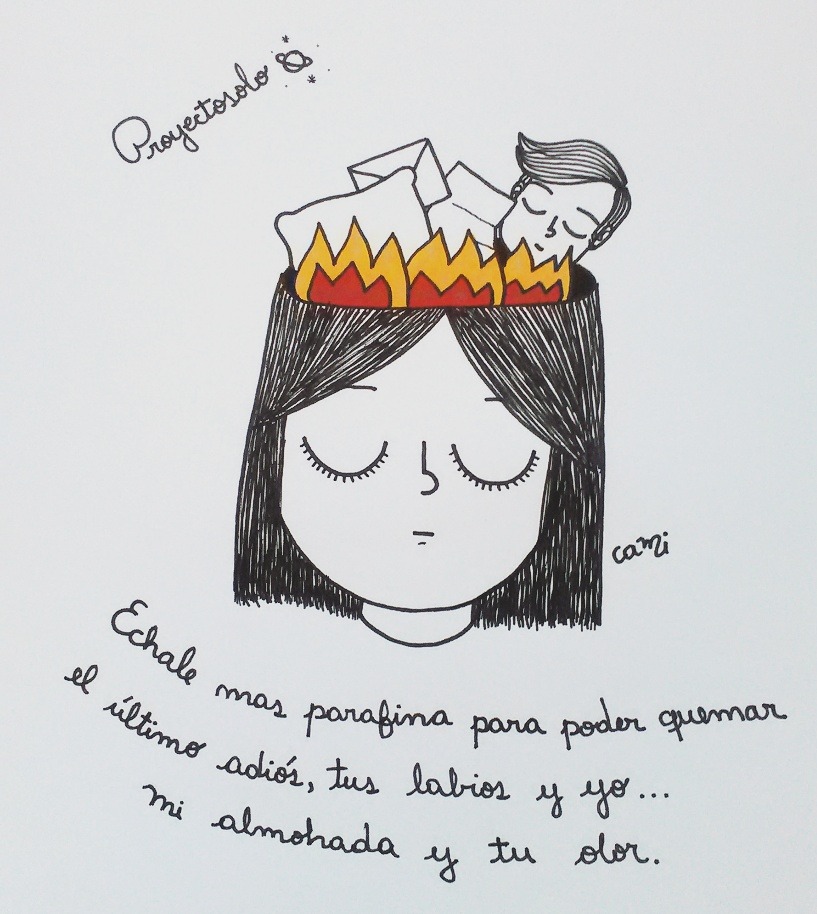 Proyectosolo
cami
Echale mas parafina para poder quemar
el último adiós, tus labios y yo...
mi almohada y tu olor.